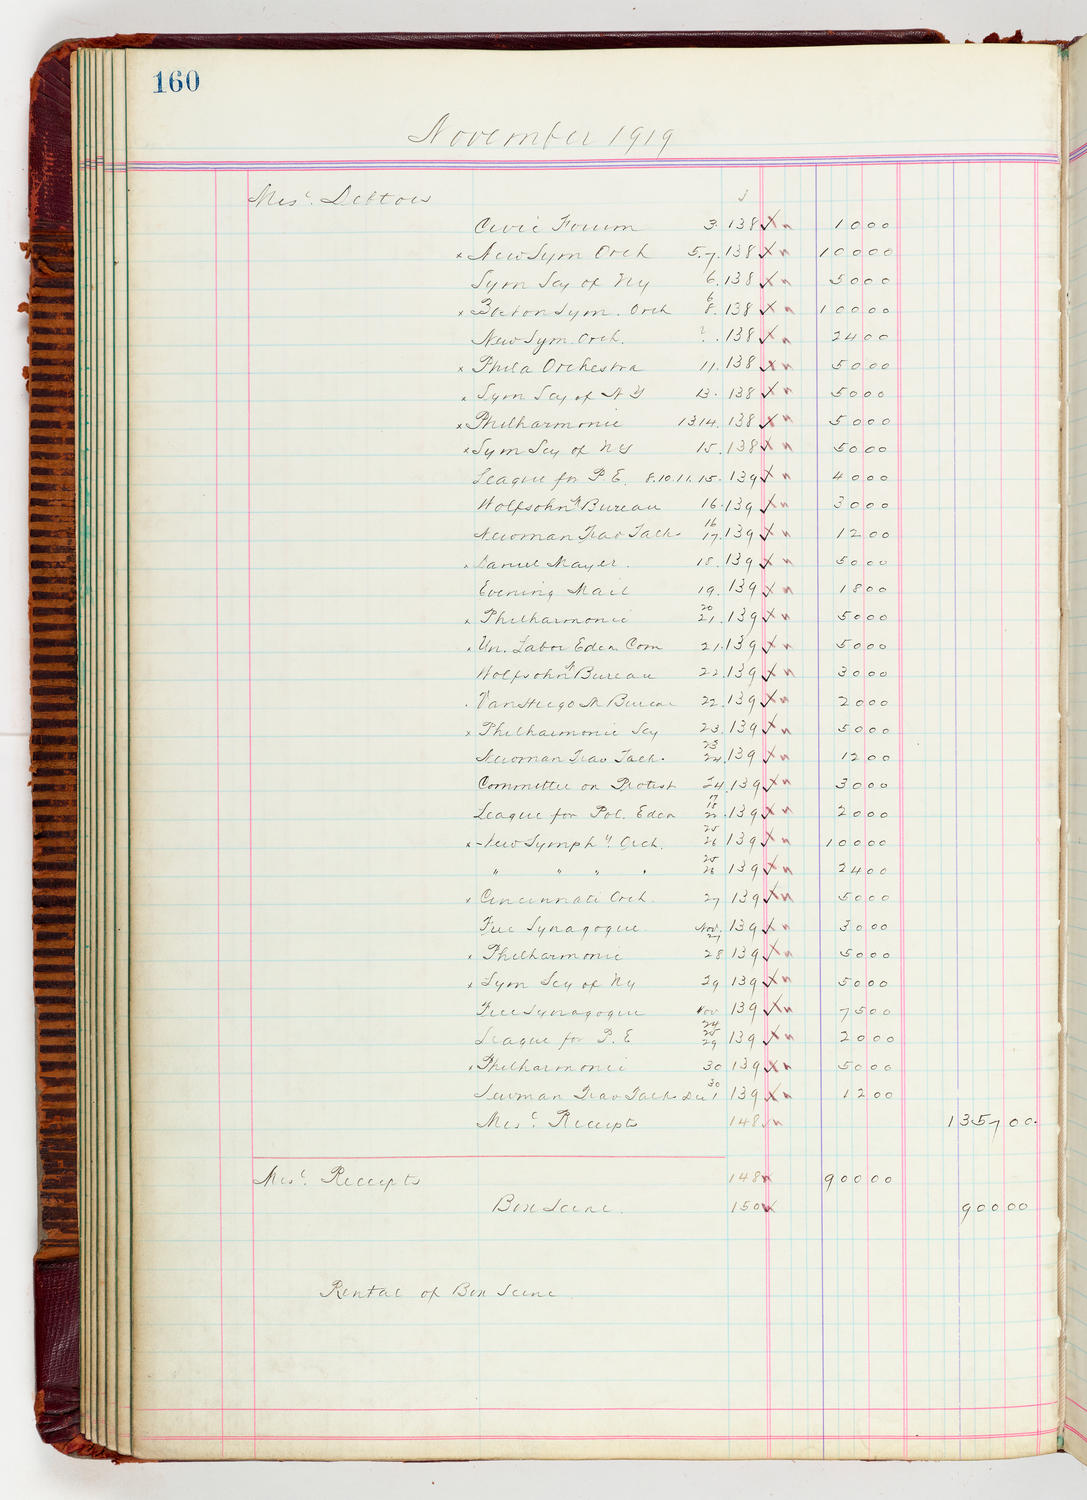 160
November 1919
Misc. Debtors
Civic Forum 3. 138 10 00
x New Sym Orch 5.7. 138 100 00
Sym Scy of Ny 6. 138 50 00
x Boston Sym. Orch 6 8. 138 100 00
New Sym. Orch. 138 24 00
x Phila Orchestra 11. 138 50 00
x Sym Scy of N Y 13. 138 50 00
x Philharmonic 13.14. 138 50 00
x Sym Scy of N Y 15. 138 50 00
League for P.E. 8.10.11.15. 139 40 00
Wolfsohn M Bureau 16. 139 30 00
Newman Trav Talk. 16 17. 139 12 00
x Daniel Mayer. 18. 139 50 00
Evening Mail 19. 139 18 00
x Philharmonic 20 21. 139 50 00
x Un. Labor Educ Com 21. 139 50 00
Wolfsohn M Bureau 22. 139 30 00
Van Hugo M Bureau 22. 139 20 00
x Philharmonic Scy 23. 139 50 00
Newman Trav Talk. 23 24. 139 12 00
Committee on Protest 24. 139 30 00
League for Pol. Educ 17 18 22. 139 20 00
x New Symphy. Orch. 25 26 139 100 00
" " " " 25 26 139 24 00
x Cincinnati Orch. 27 139 50 00
Free Synagogue. Nov. 27 139 30 00
x Philharmonic 28 139 50 00
x Sym Scy of Ny 29 139 50 00
Free Synagogue Nov 139 75 00
League for P.E 24 25 29 139 20 00
x Philharmonic 30 139 50 00
Newman Trav Talk 30 Dec 1 139 12 00
Misc. Receipts 148 1357 00.
Misc. Receipts 148 900 00
Box Scene. 150 900 00
Rental of Box Scene